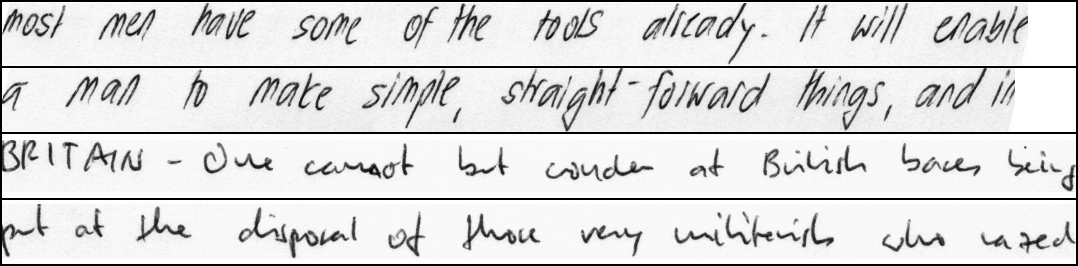 most men have some of the tools already. It will enable
a man to make simple, straight-forward things, and in
BRITAIN - One cannot but wonder at British bases being
put at the disposal of those very militarists who razed